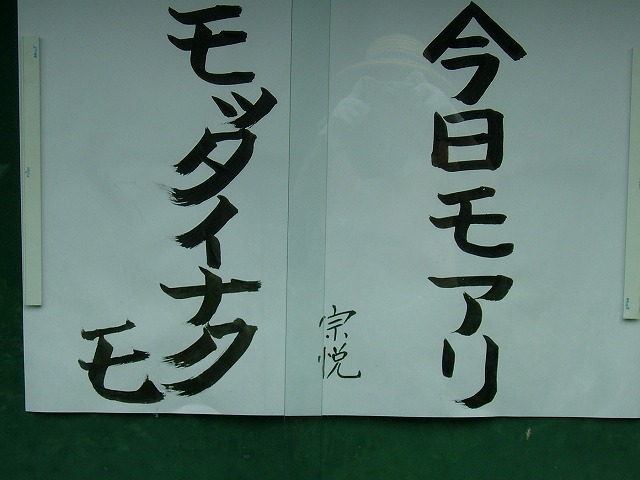 今日モアリ
モッタイナクモ
宗悦